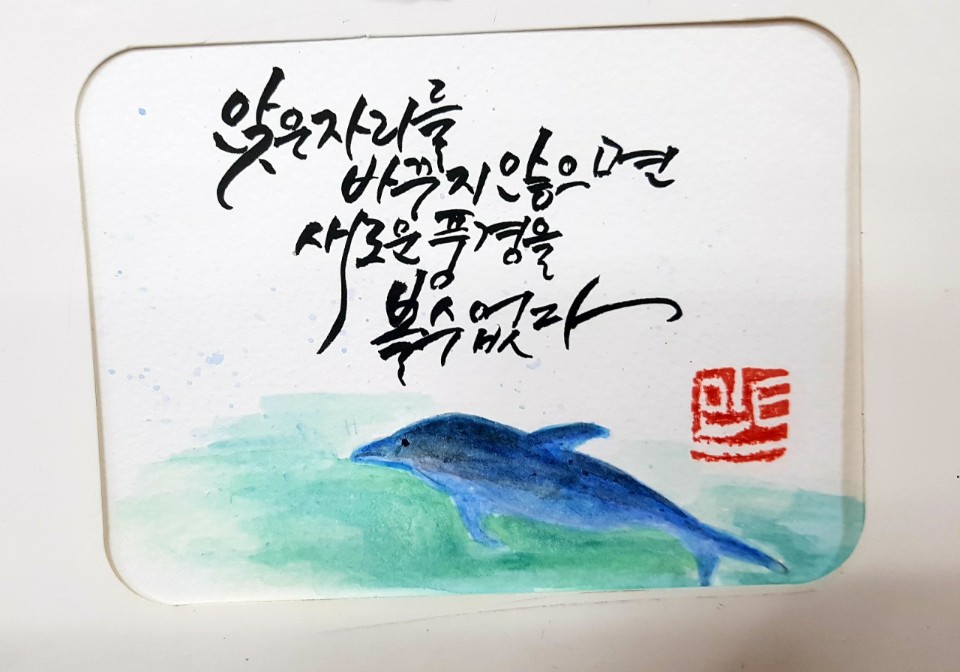 앉은자리를
바꾸지 않으면
새로운 풍경을
볼수 없다